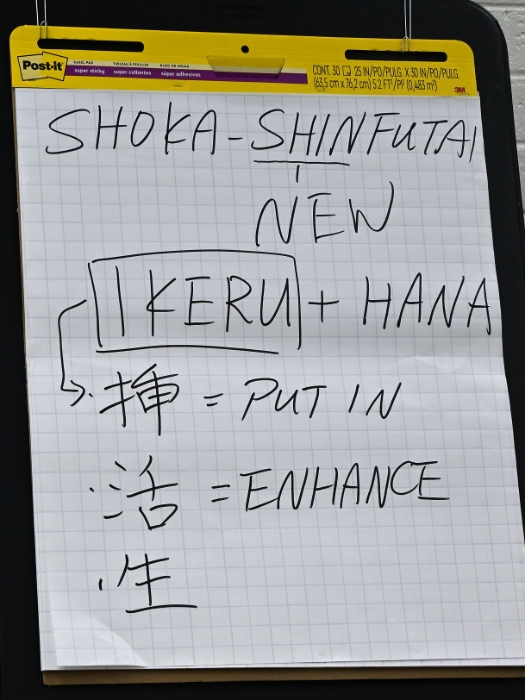 Post-it
super sticky super collantes súper adhesivos
CONT. 30 25 IN/PO/PULG. X 30 IN/PO/PULG.
(63,5 cm x 76,2 cm) 5.2 FT²/PI² (0,483 m²)
3M
SHOKA-SHINFUTAI
NEW
IKERU + HANA
挿 = PUT IN
活 = ENHANCE
生